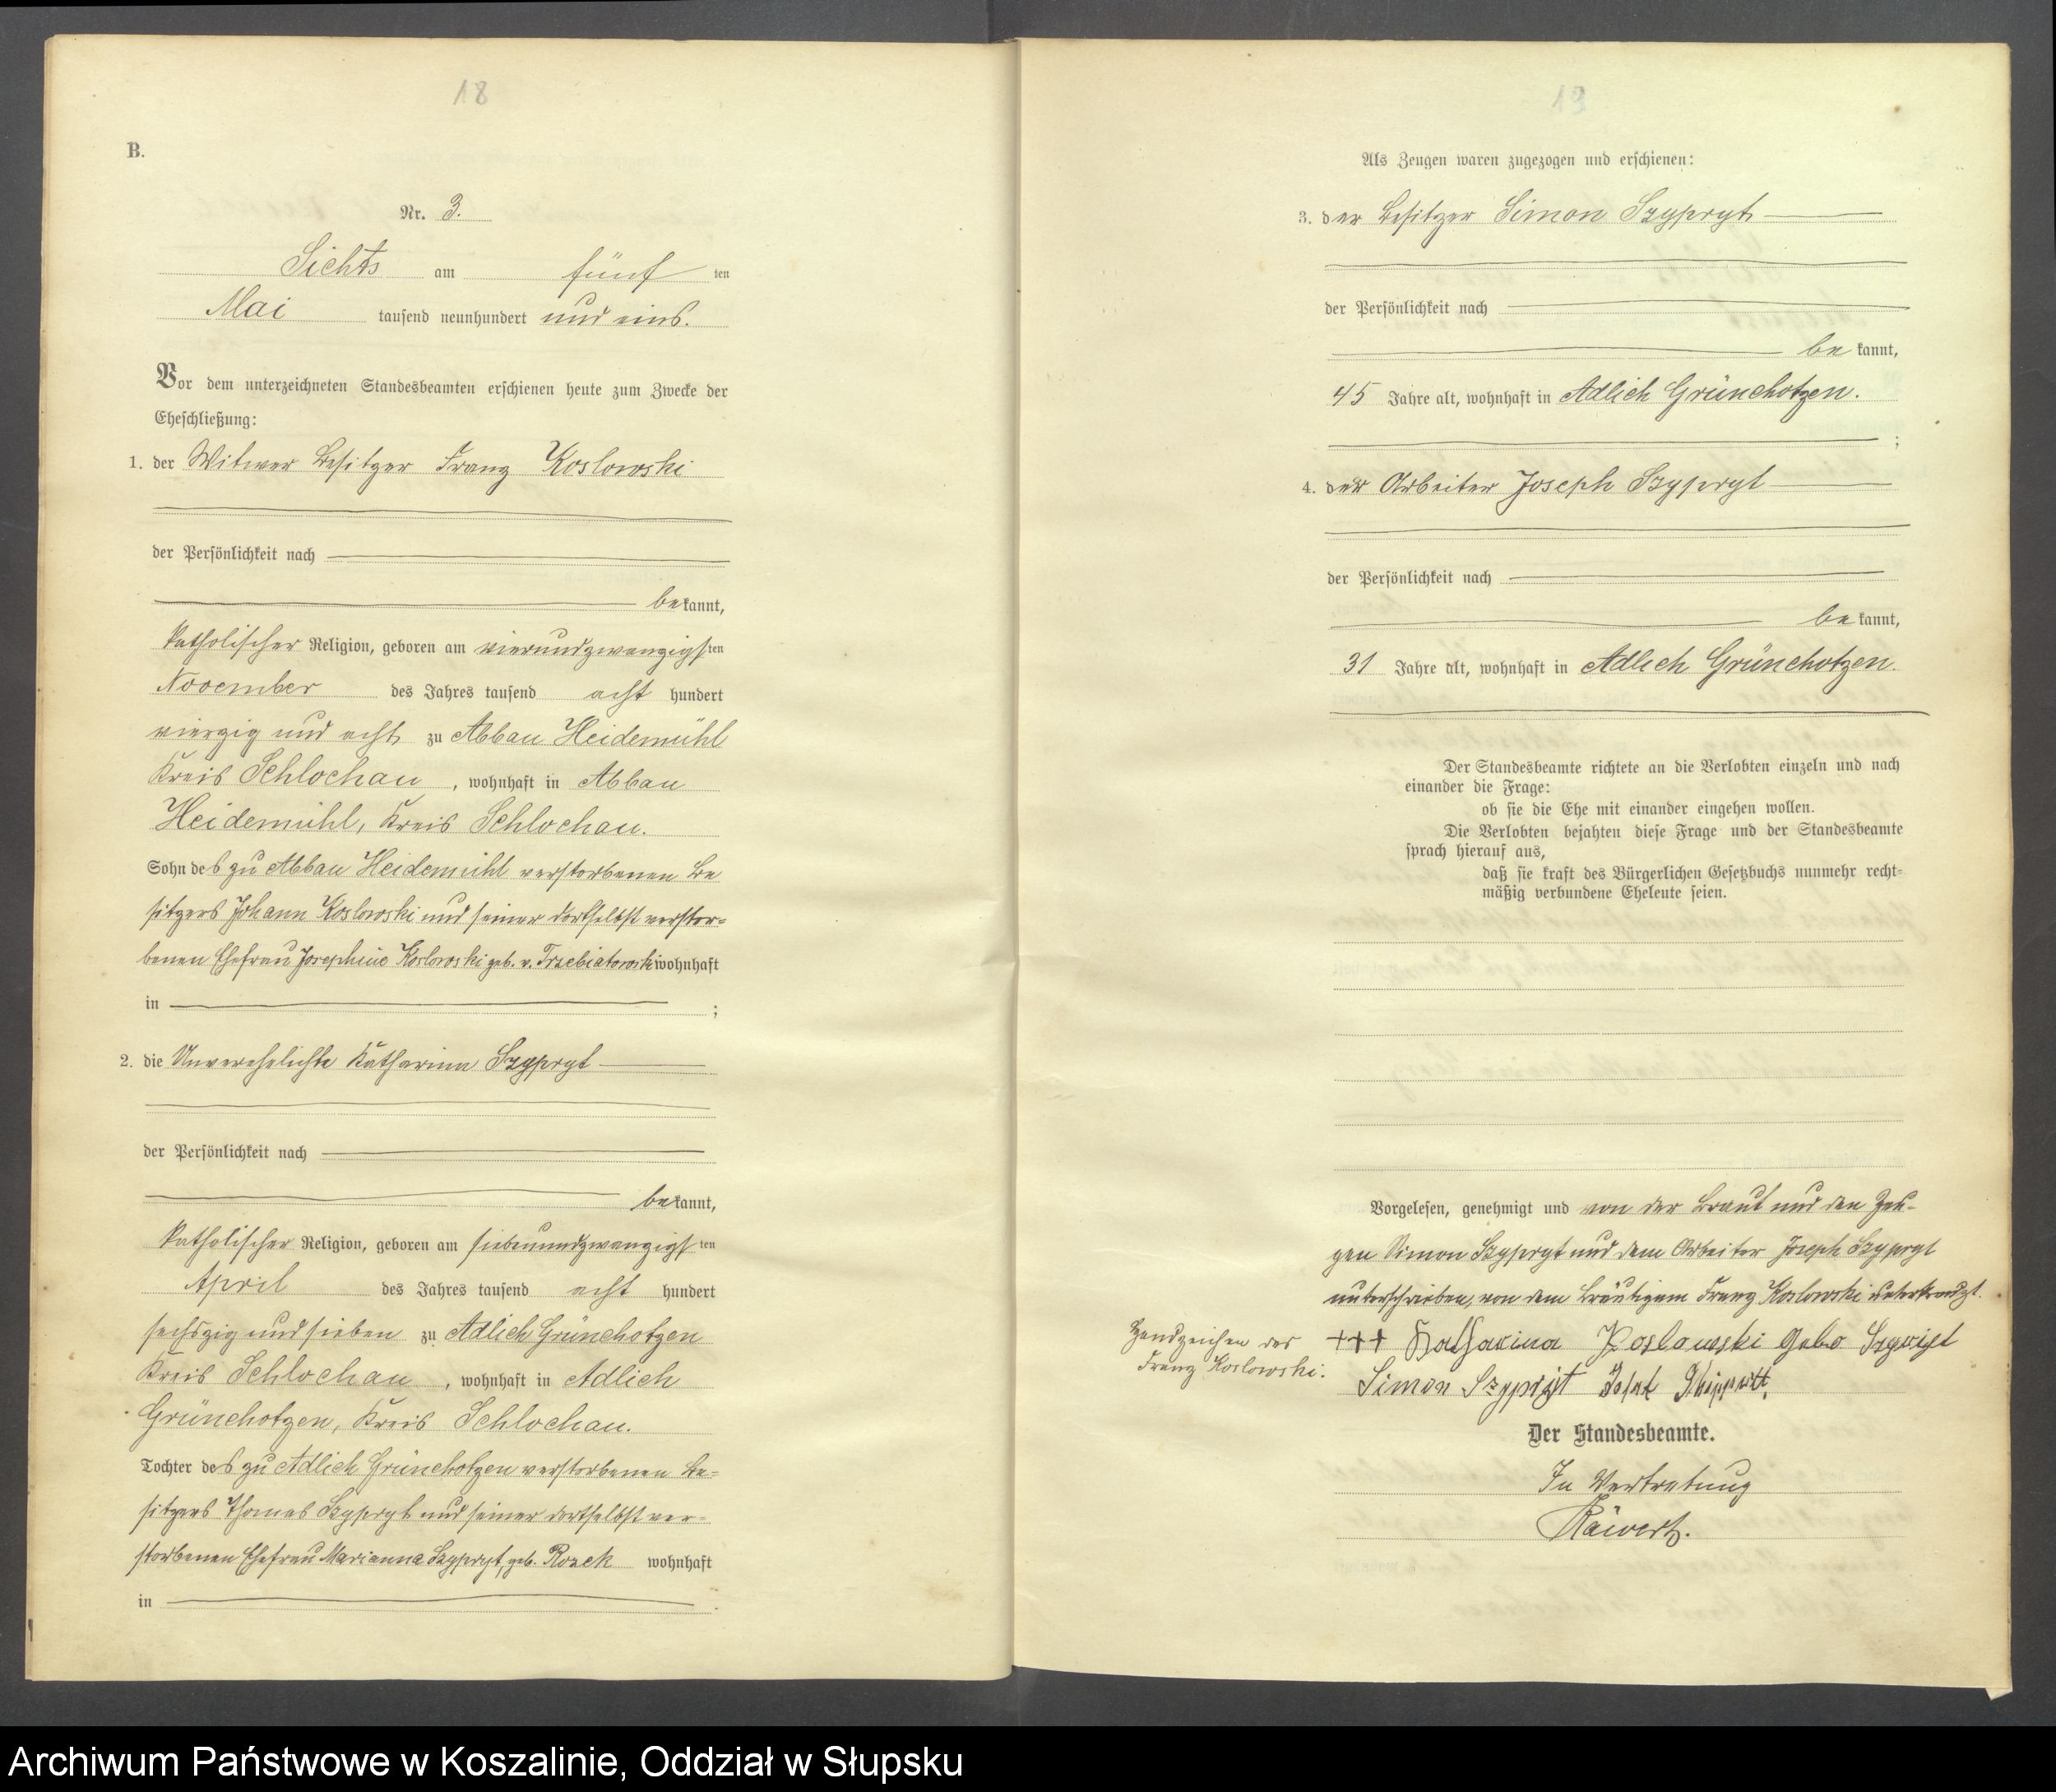 18
B.
Nr. 3.
Sichts am fünf ten
Mai tausend neunhundert und eins.
Vor dem unterzeichneten Standesbeamten erschienen heute zum Zwecke der
Eheschließung:
1. der Witwer Besitzer Franz Koslowski
der Persönlichkeit nach
be kannt,
katholischer Religion, geboren am vierundzwanzigsten
November des Jahres tausend acht hundert
vierzig und acht zu Abbau Heidemühl
Kreis Schlochau, wohnhaft in Abbau
Heidemühl, Kreis Schlochau.
Sohn des zu Abbau Heidemühl verstorbenen Be
sitzers Johann Koslowski und seiner dortselbst verstor=
benen Ehefrau Josephine Koslowski geb. v. Trzebiatowski wohnhaft
in ;
2. die Unverehelichte Katharina Szypryt
der Persönlichkeit nach
be kannt,
katholischer Religion, geboren am siebenundzwanzigsten
April des Jahres tausend acht hundert
sechszig und sieben zu Adlich Grünchotzen
Kreis Schlochau, wohnhaft in Adlich
Grünchotzen, Kreis Schlochau.
Tochter des zu Adlich Grünchotzen verstorbenen Be=
sitzers Thomas Szypryt und seiner dortselbst ver=
storbenen Ehefrau Marianna Szypryt, geb. Rozek wohnhaft
in .
19
Als Zeugen waren zugezogen und erschienen:
3. der Besitzer Simon Szypryt
der Persönlichkeit nach
be kannt,
45 Jahre alt, wohnhaft in Adlich Grünchotzen.
;
4. der Arbeiter Joseph Szypryt
der Persönlichkeit nach
be kannt,
31 Jahre alt, wohnhaft in Adlich Grünchotzen.
Der Standesbeamte richtete an die Verlobten einzeln und nach
einander die Frage:
ob sie die Ehe mit einander eingehen wollen.
Die Verlobten bejahten diese Frage und der Standesbeamte
sprach hierauf aus,
daß sie kraft des Bürgerlichen Gesetzbuchs nunmehr recht=
mäßig verbundene Eheleute seien.
Vorgelesen, genehmigt und von der Braut und den Zeu-
gen Simon Szypryt und dem Arbeiter Joseph Szypryt
unterschrieben, von dem Bräutigam Franz Koslowski unterkreuzt.
Handzeichen des +++ Katharina Koslowski Gebo Szypryt
Franz Koslowski. Simon Szypryt
Der Standesbeamte.
In Vertretung
Archiwum Państwowe w Koszalinie, Oddział w Słupsku